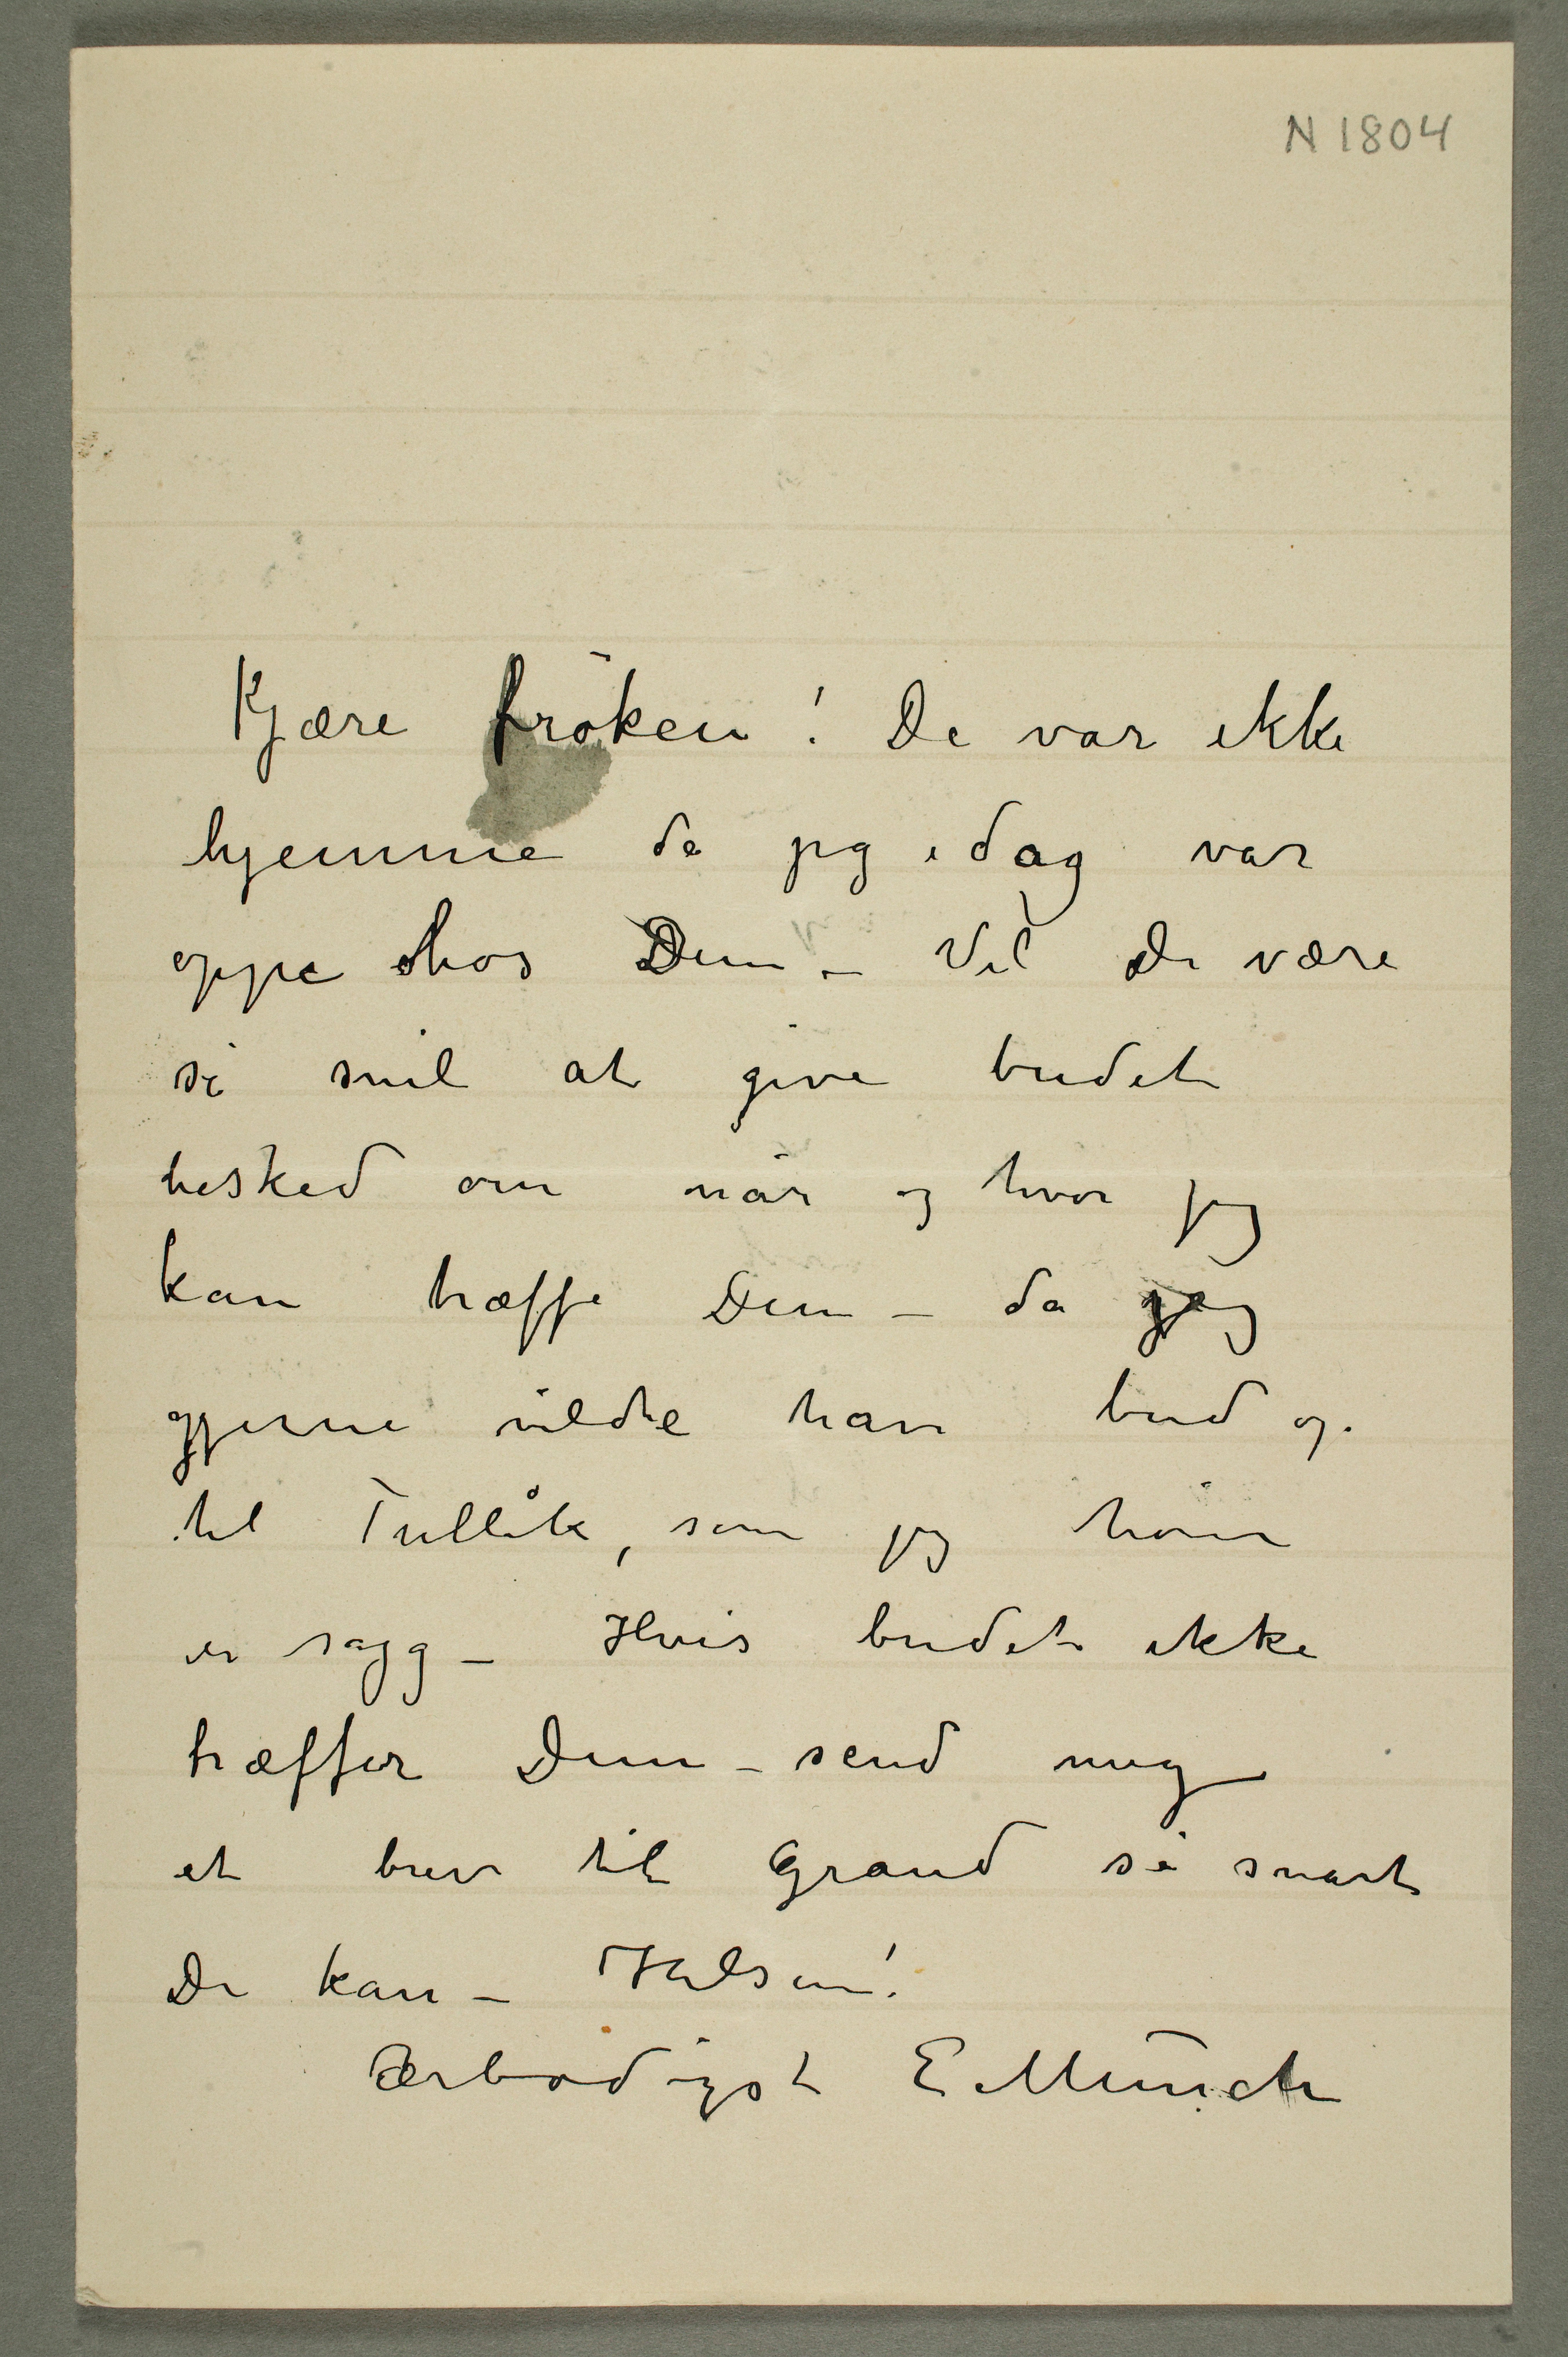 N 1804
Kjære frøken! De var ikke
hjemme da jeg idag var
oppe hos Dem – Vil De være
så snil at give budet
besked om når og hvor jeg
kan træffe Dem – da jeg
gjerne vilde have bud op
til Tullik, som jeg hører
er sygg – Hvis budet ikke
træffer Dem – send mig
et brev til Grand så snart
De kan – Hilsen!
Ærbødigst E Munch